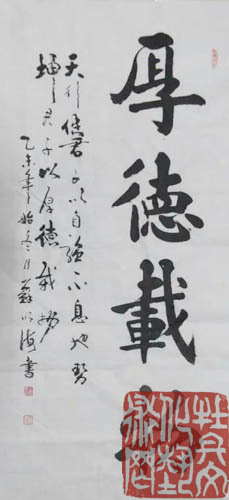 厚德載物
天行健君子以自強不息地勢
坤君子以厚德載物
乙未年始冬月蘇
書